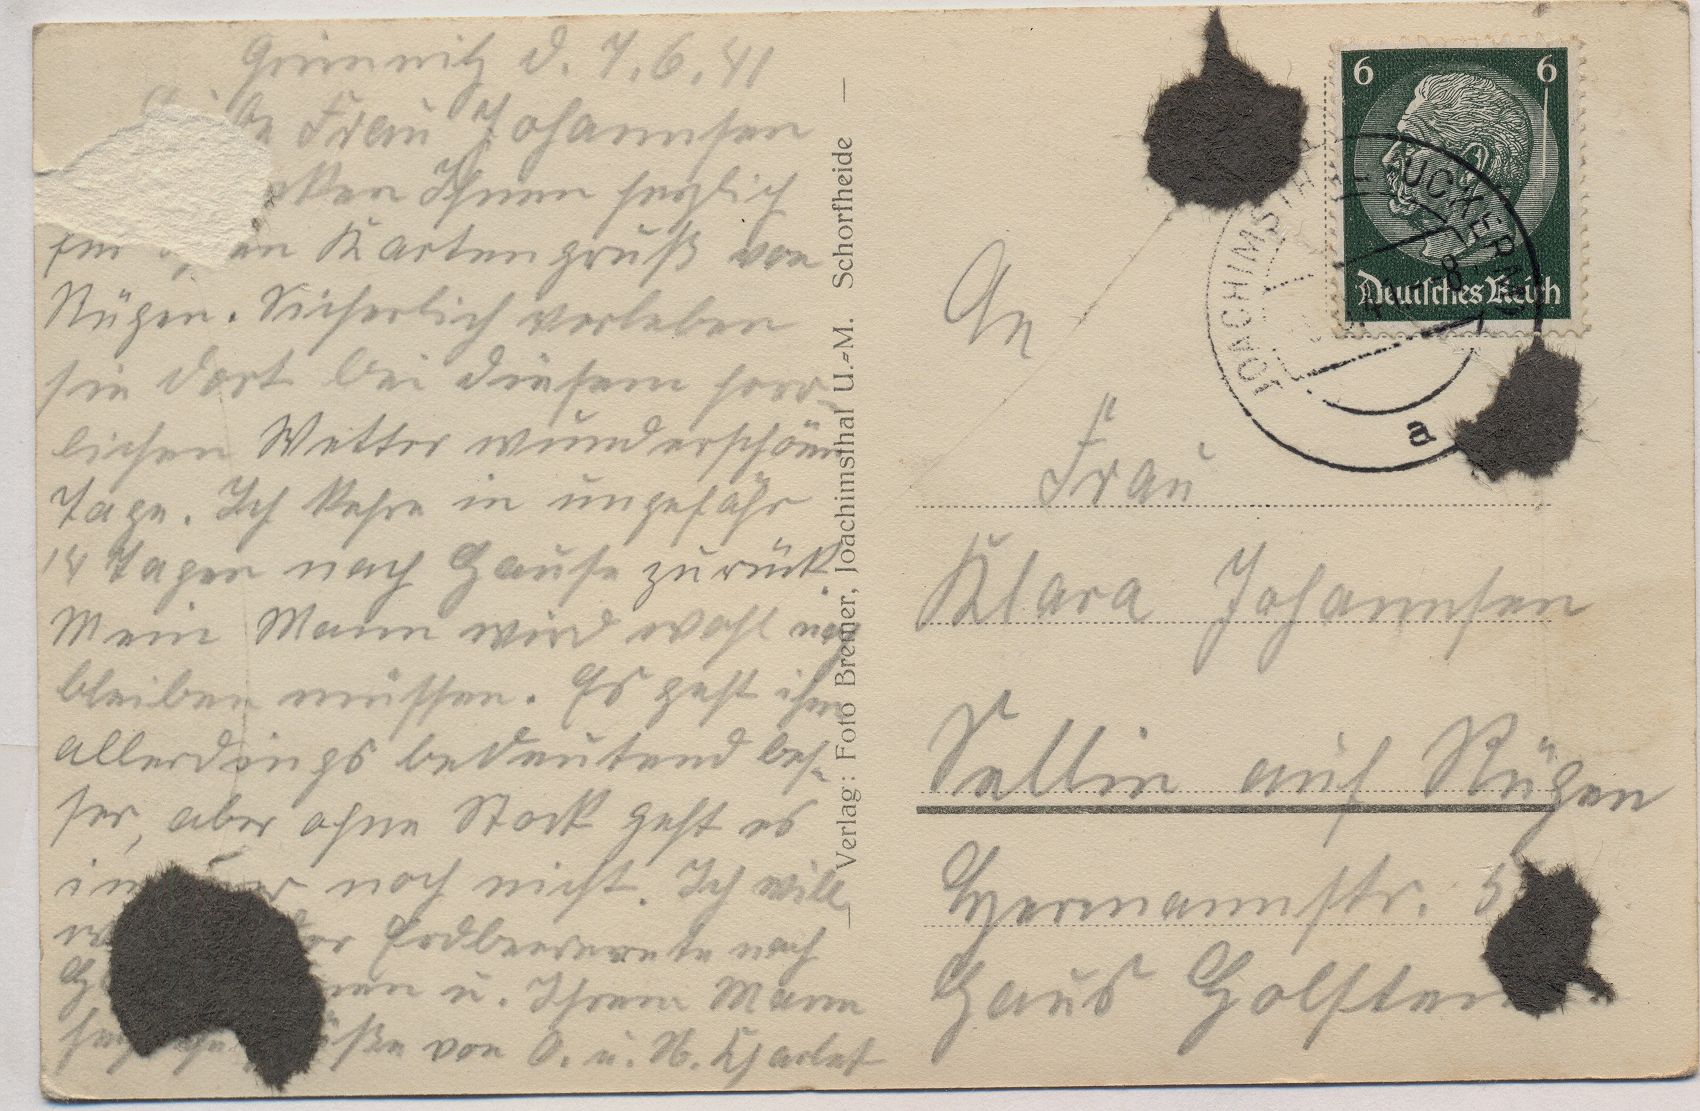 Grimnitz d. 7.6.41
Frau Johannsen
Ihnen herzlich
Kartengruß von
Rügen. Sicherlich verleben
sie dort bei diesem herr-
lichen Wetter wunderschöne
Tage. Ich kehre in ungefähr
14 Tagen nach Hause zurück
Mein Mann wird wohl noch
bleiben müssen. Es geht ihm
allerdings bedeutend bes-
ser, aber ohne Stock geht es
noch nicht. Ich will
Erdbeerernte nach
u. Ihrem Mann
von O. u. H.
Verlag: Foto Bremer, Joachimsthal U.-M. Schorfheide
6 6
Deutsches Reich
JOACHIMSTHAL
UCKERM
8
a
An
Frau
Klara Johannsen
Sellin auf Rügen
Hermannstr. 5
Haus Holstein